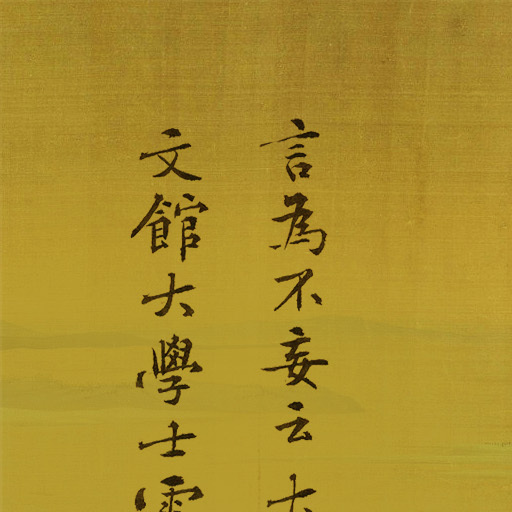 言為不妄云
文館大學士